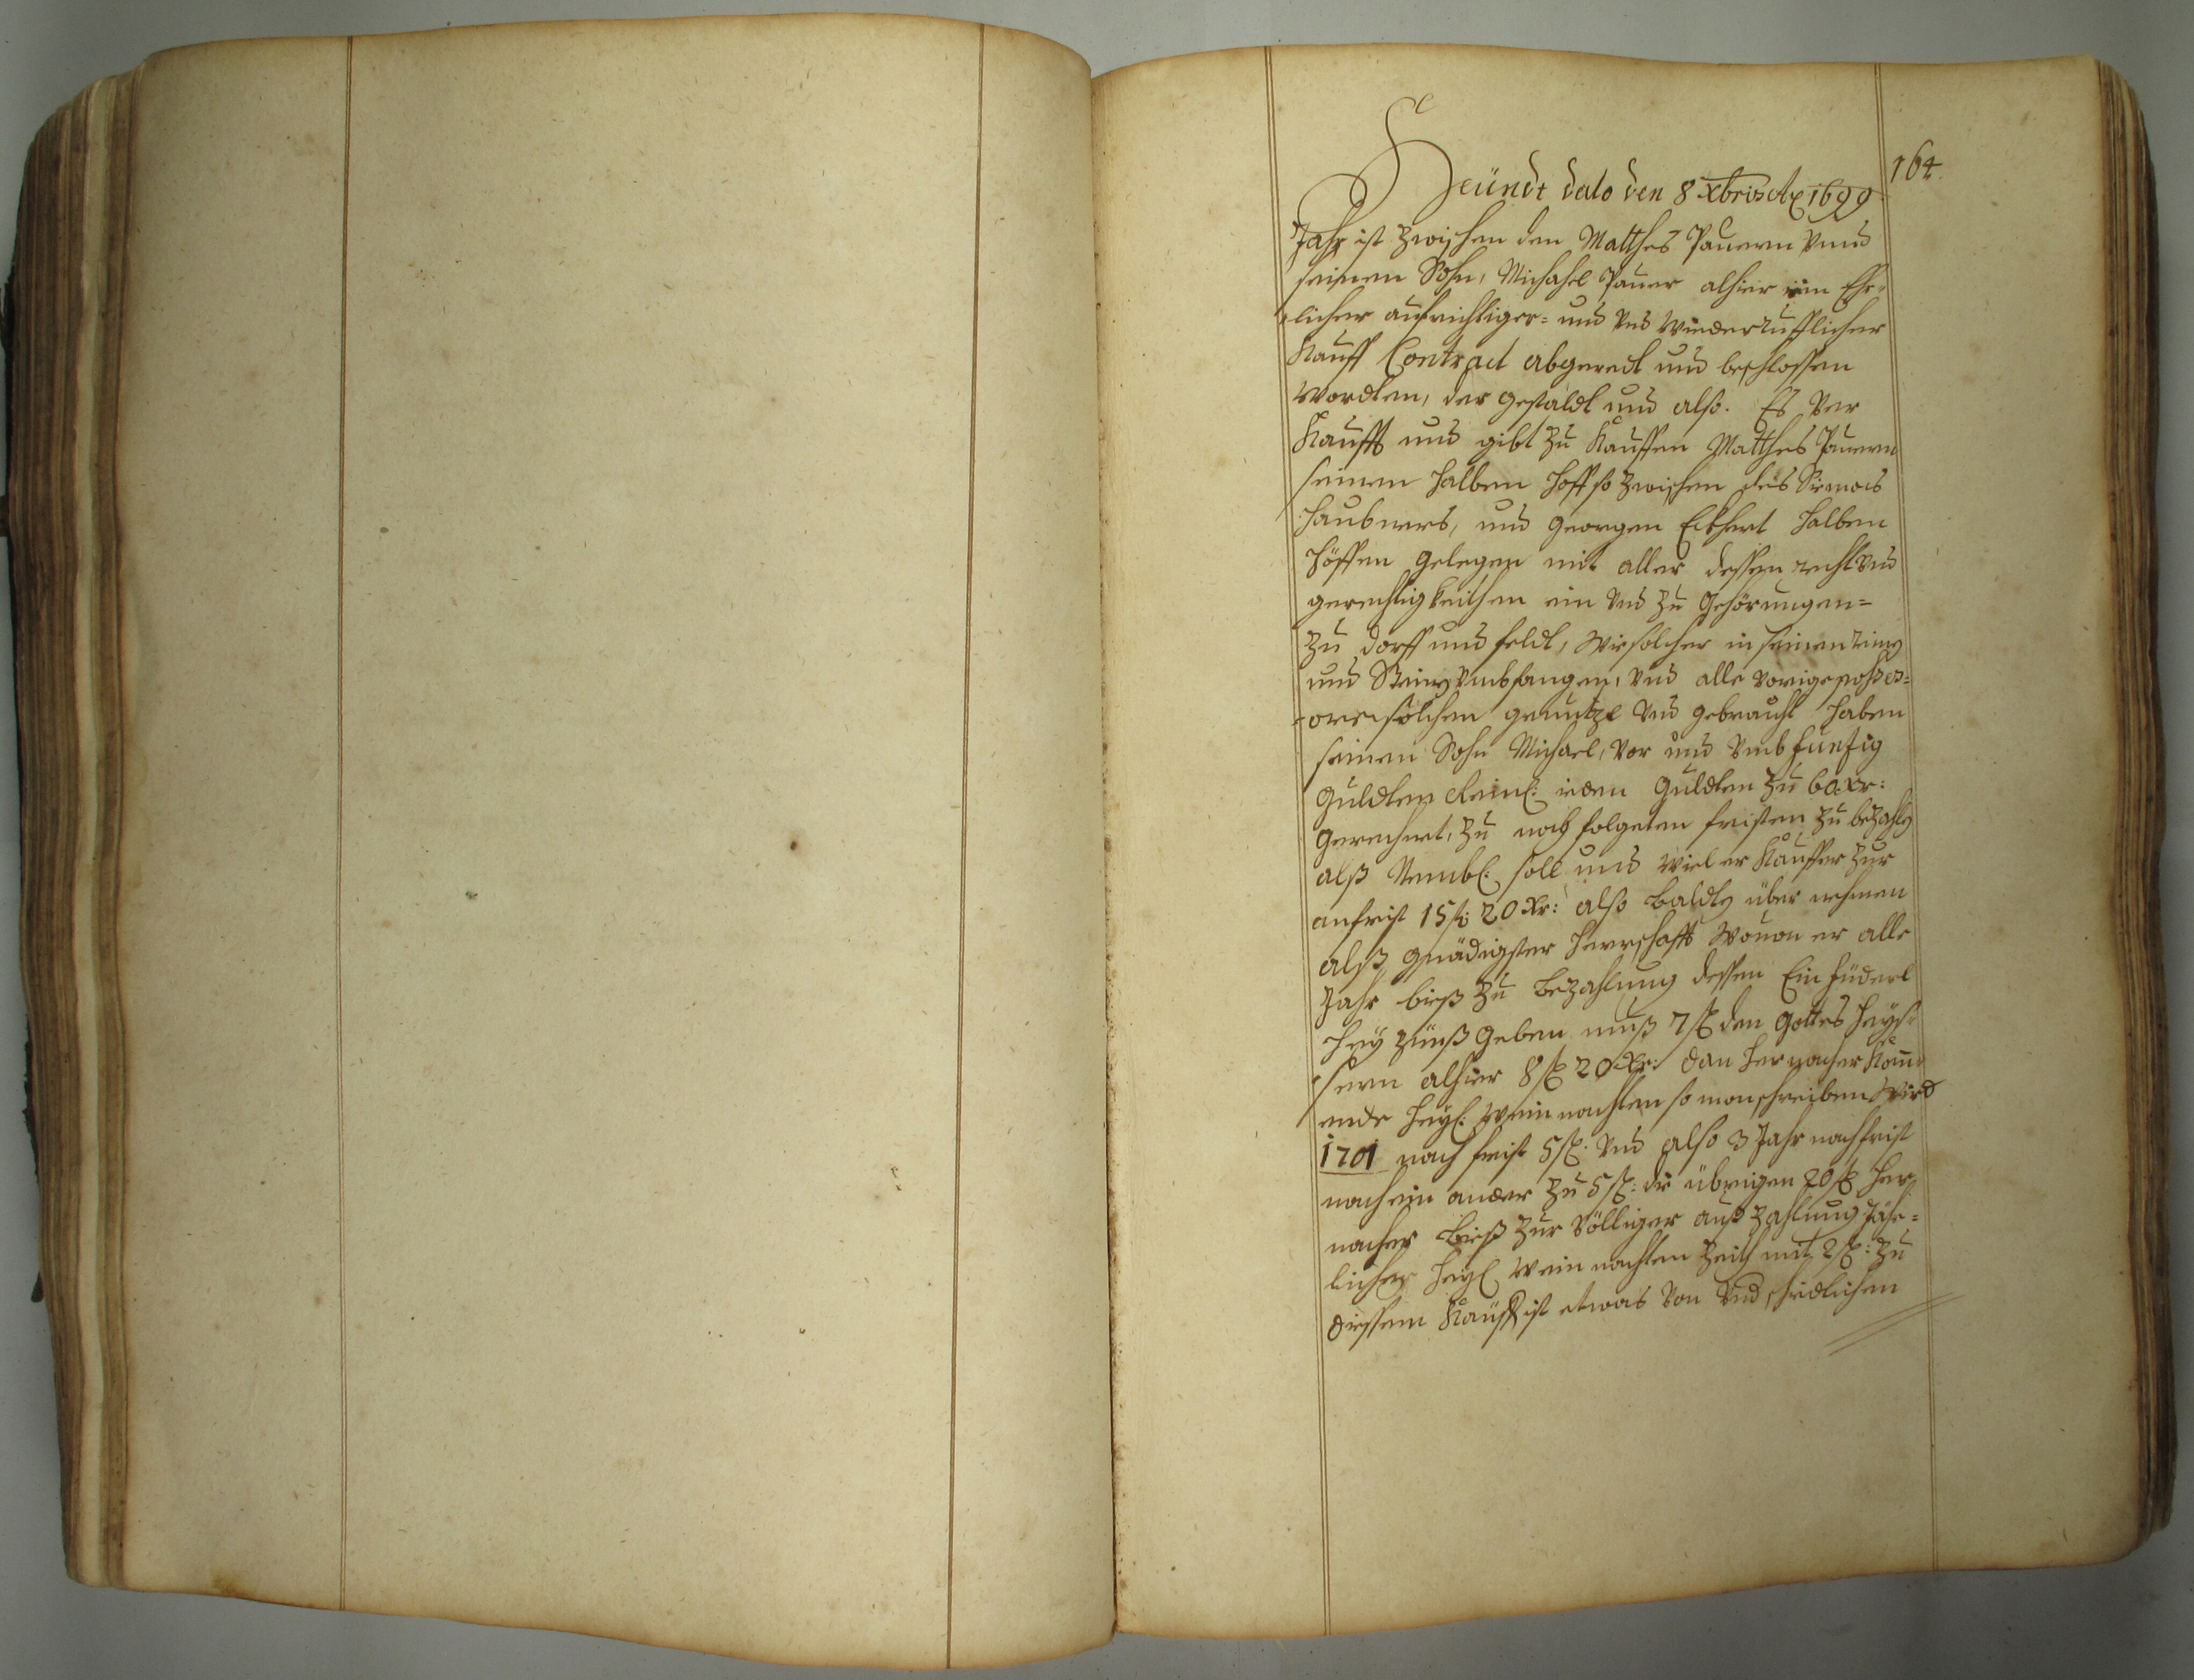 164.
Heündt dato den 8 Xbris Ao 1699
Jahr ist zwischen den Matthes Pauern vnnd
seinem Sohn, Michahel Pauer alhier ein Ehr-
licher aufrichtiger- und vnd wiederrufflicher
Kauff Contract abgeredt und beschlossen
wordten, der gestaldt und also. Es ver
Kaufft und gibt zu Kauffen Matthes Pauern
seinen halben Hoff so zwischen des Simois
Haubners, und Georgen Eckhert halben
Höffen gelegen mit aller dessen recht vnd
gerechtigkeithen ein vnd zu gehörungen-
zu dorff und feldt, wie solcher in seinen rainn
und Steinn vmbfangen, vnd alle vorige posses-
-ores solchen genutzt vnd gebraucht haben
seinem Sohn Michael, vor und vmb funfzig
Guldten Reinl: ieden Guldten zu 60 Xr:
gerechnet, zu nach folgeten fristen zu bezahln
alß Nembl: soll und wiel er Kauffer zur
anfrist 15 fl: 20 Xr: also baldtn über nehmen
alß gnädigster Herrschafft wouon er alle
Jahr bieß zu bezahlung dessen Ein füderl
Heÿ zünß geben muß 7 fl den Gottes Heüs-
sern alhier 8 fl 20 Xr: dan hernacher Kom-
ende Heyl: Weinnachten so man schreiben wird
1701 nach frist 5 fl. vnd also 3 Jahr nachfrist
nach ein ander zu 5 fl: die übrigen 20 fl her-
nacher bieß zur völliger auß zahlung Jähr-
licher Heyl Weinnachten Zeith mit 2 fl: zu
diessem Kauff ist etwas von vnd schidlichen